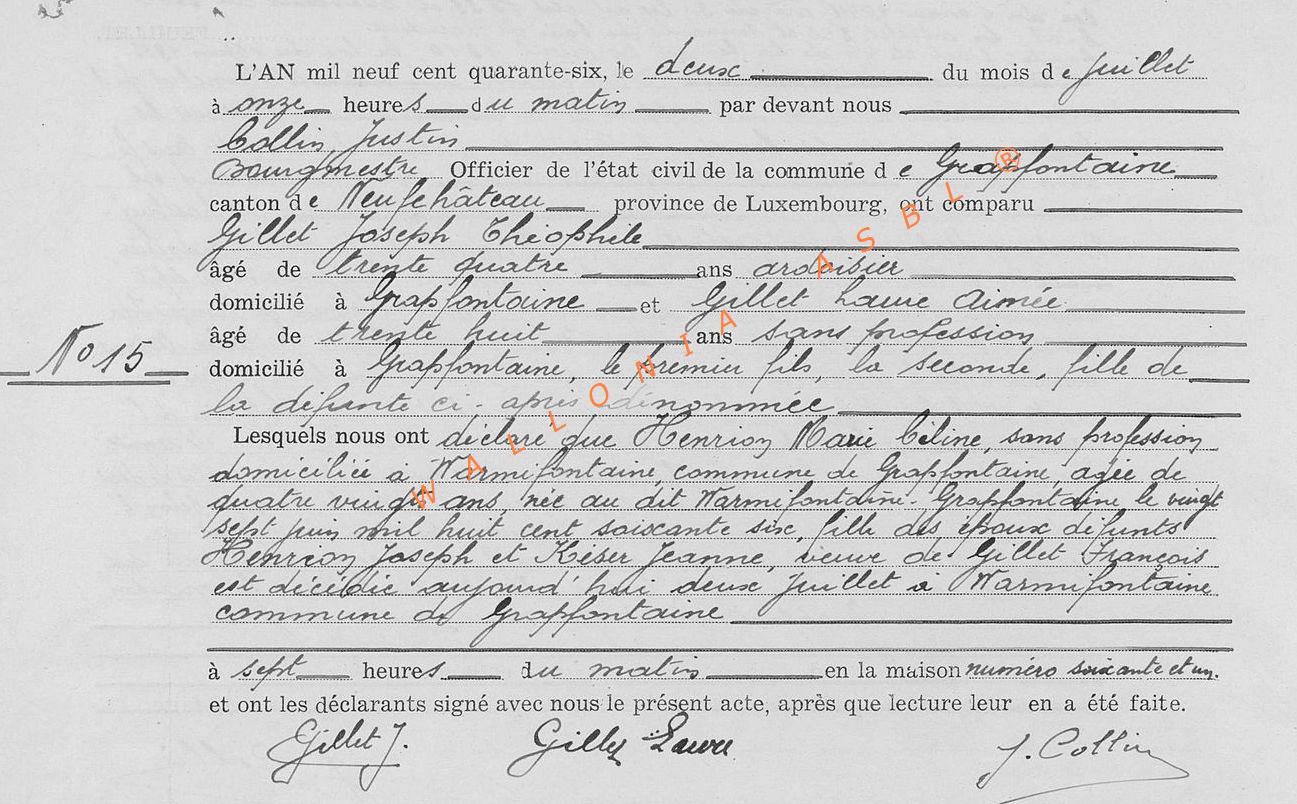 L'AN mil neuf cent quarante-six, le deux du mois de juillet
à onze heures du matin par devant nous
Collin, Justin
Bourgmestre Officier de l'état civil de la commune de Grapfontaine
canton de Neufchâteau province de Luxembourg, ont comparu
Gillet Joseph Théophile
âgé de trente quatre ans ardoisier
domicilié à Grapfontaine et Gillet Laure Aimée
âgé de trente huit ans sans profession
N° 15
domicilié à Grapfontaine, le premier fils, la seconde, fille de
la défunte ci-après dénommée
Lesquels nous ont déclaré que Henrion Marie Céline, sans profession
domiciliée à Warmifontaine, commune de Grapfontaine, agée de
quatre vingts ans, née au dit Warmifontaine-Grapfontaine le vingt
sept juin mil huit cent soixante six, fille des époux défunts
Henrion Joseph et Késer Jeanne, veuve de Gillet François
est décédée aujourd'hui deux juillet à Warmifontaine
commune de Grapfontaine
à sept heures du matin en la maison numéro soixante et un.
et ont les déclarants signé avec nous le présent acte, après que lecture leur en a été faite.
Gillet J. Gillet Laure J. Collin
WALLONIA ASBL ®